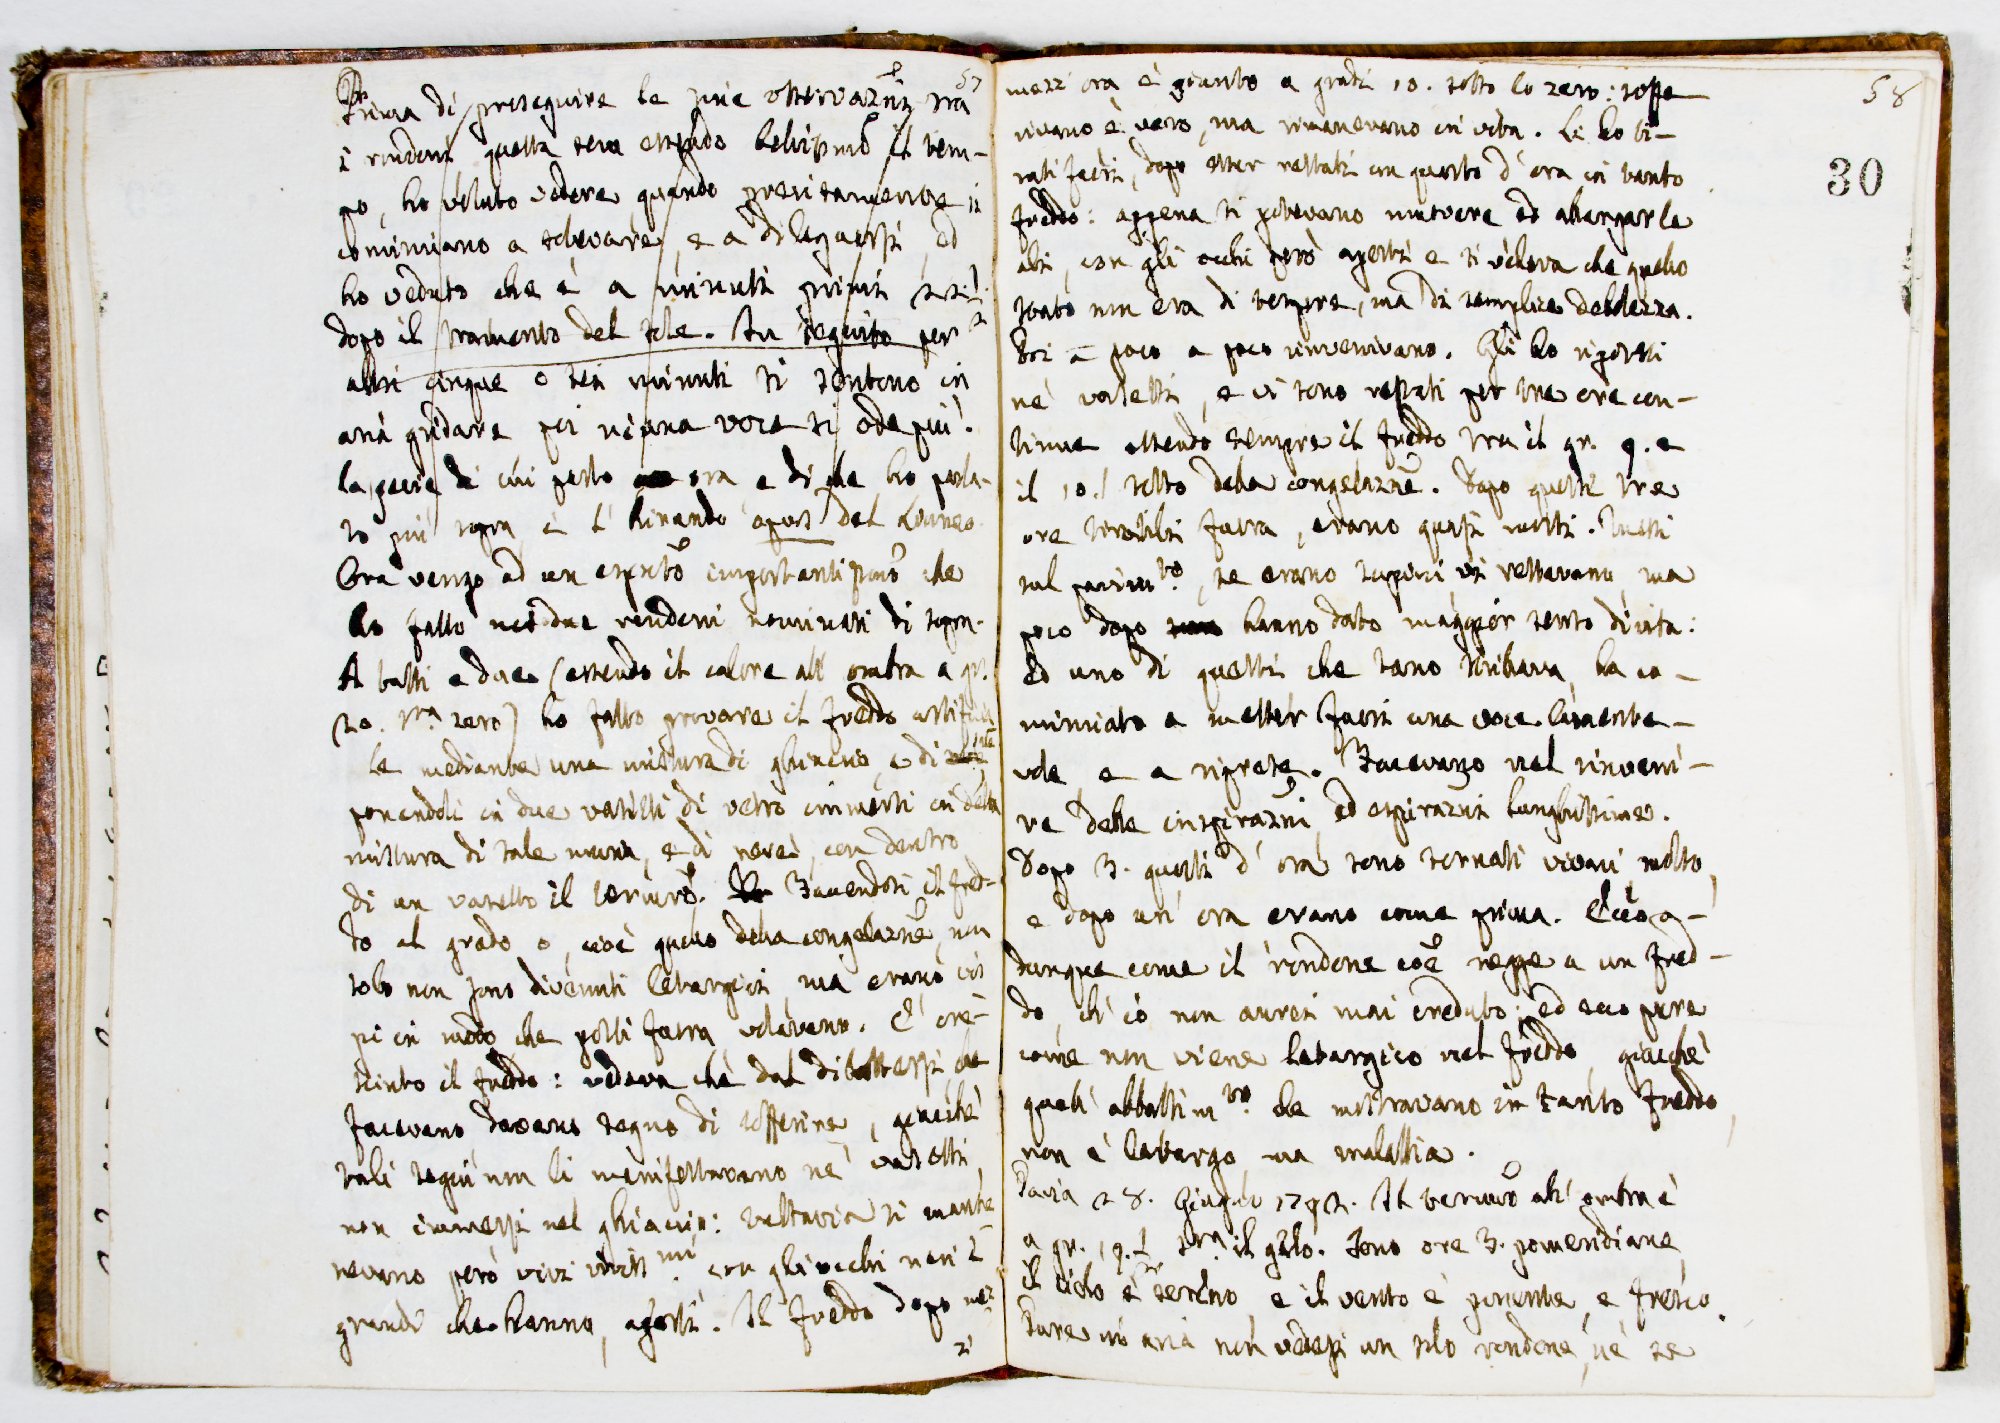 57
Prima di proseguire le mie osservazni tra
i rondoni questa sera essendo bellissmo il tem-
po, ho voluto vedere quando precisamente in
cominciano a schivare, e a dileguarsi, ed
ho veduto che è a minuti primi 22 1/2
dopo il tramonto del sole. In seguito per
altri cinque o sei minuti si sentono in
aria gridare poi niuna voce si ode più.
la specie di cui parlo ora e di che ho parla-
to più sopra è l'hirundo apus del Linneo.
Ora vengo ad un esprto importantissmo che
ho fatto nei due rondoni nominati di sopra.
A tutti e due (essendo il calore all'ombra a gr.
20. sra zero) ho fatto provare il freddo artificia
le mediante una mistura di ghiaccio, e di
ponendoli in due vasetti di vetro immersi in detta
mistura di sale marin, e di neve, con dentro
di un vasetto il termro. Facendosi il fred-
do al grado 0, cioè quello della congelazne, non
solo non sono divenuti letargici, ma erano vis
pi in modo che posti fuora volavano. È cre-
sciuto il freddo: vedeva che dal dibattersi, che
facevano davano segno di soffrire, giacchè
tali segni non li manifestavano ne' vasetti
non immersi nel ghiaccio: tuttavia si mante
nevano però vivi vivissmi. con gli occhi neri e
grandi che hanno, aperti. Il freddo dopo mez
zi
58
30
mezz'ora è giunto a gradi 10. sotto lo zero: soffe
rivano è vero, ma rimanevano in vita. Li ho ti-
rati fuori, dopo esser restati un quarto d'ora in tanto
freddo: appena si potevano muovere ed allargar le
ali, con gli occhi però aperti e si vedeva che quello
stato non era di sempre, ma di semplice debolezza.
Poi a poco a poco rinvenivano. Gli ho riposti
ne' vasetti, e vi sono restati per tre ore con-
tinue essendo sempre il freddo tra il gr. 9. e
il 10. sotto della congelazne. Dopo queste tre
ore toltili fuora, erano quasi morti. Messi
sul pavimto., se erano supini vi restavano, ma
poco dopo hanno dato maggior senso di vita:
ed uno di questi che tano stribava, ha co-
minciato a metter fuori una voce lamente-
vole e a riprese. Facevano nel rinveni-
re delle inspirazni, ed espirazni lunghissime.
Dopo 3. quarti d'ora sono tornati vivaci molto,
e dopo un'ora erano come prima. Eccoo a-
dunque come il rondone coe regge a un fred-
do, ch'io non avrei mai creduto; ed ecco pure
come non viene letargico nel freddo, giacchè
quell'abbattimto. che mostravano in tanto freddo,
non è letargo, ma malattia.
Pavia 28. Giugno 1792. Il termro all'ombra è
a gr. 19. 1/2 sra il gelo. Sono ore 3. pomeridiane
il cielo è sereno, e il vento è ponente, e fresco.
Pure in aria non vedesi un solo rondone, nè se